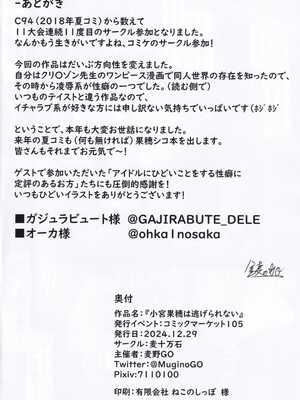 -あとがき
C94(2018年夏コミ)から数えて
11大会連続11度目のサークル参加となりました。
なんかもう生きがいですよね、コミケのサークル参加！
今回の作品はだいぶ方向性を変えました。
自分はクリ○ゾン先生のワンピース漫画で同人世界の存在を知ったので、
その時から凌辱系が性癖の一つでした。(読む側で)
いつものテイストと違う作品なので、
イチャラブ系が好きな方には申し訳ない気持ちでいっぱいです(ﾎｼﾞﾎｼﾞ
ということで、本年も大変お世話になりました。
来年の夏コミも(何も無ければ)果穂シコ本を出します。
皆さんもそれまでお元気で～！
ゲストで参加いただいた「アイドルにひどいことをする性癖に
定評のあるお方」たちにも圧倒的感謝を！
いつもひどいイラストをありがとうございます！
■ガジュラビュート様 @GAJIRABUTE_DELE
■オーカ様 @ohka1nosaka
奥付
作品名：『小宮果穂は逃げられない』
発行イベント：コミックマーケット105
発行日：2024.12.29
サークル：麦十万石
主催者：麦野GO
Twitter：@MuginoGO
Pixiv：7110100
印刷：有限会社 ねこのしっぽ 様